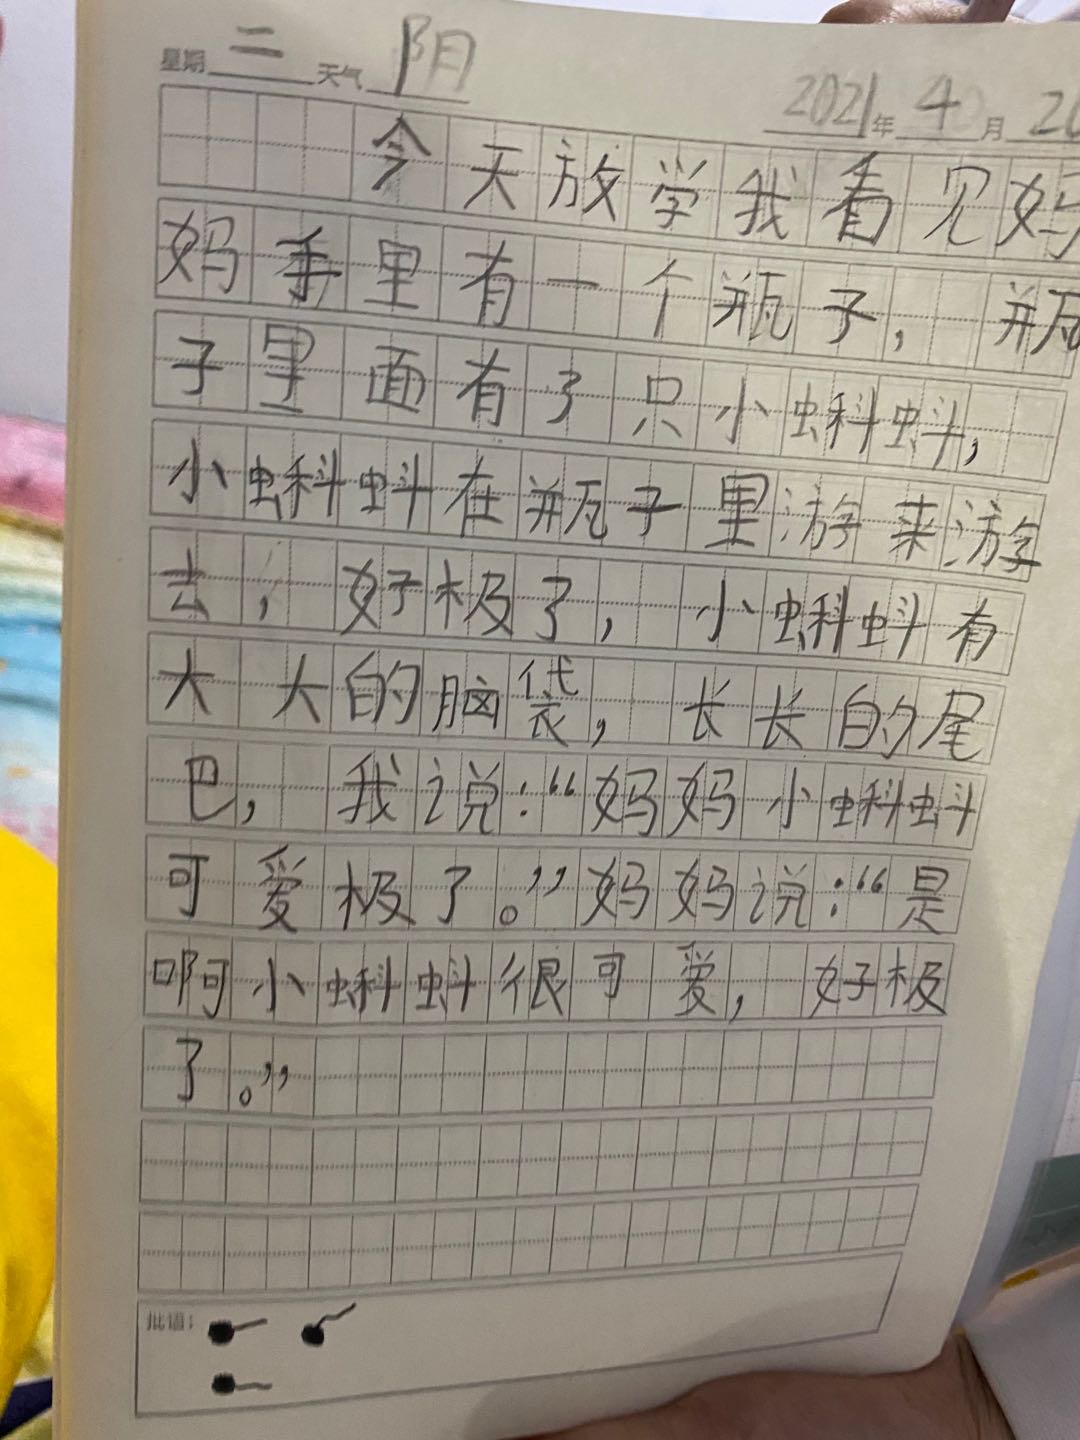 星期二 天气 阴 2021年 4月 2
今天放学我看见妈
妈手里有一个瓶子，瓶
子里面有了只小蝌蚪，
小蝌蚪在瓶子里游来游
去，好极了，小蝌蚪有
大大的脑袋，长长的尾
巴，我说：“妈妈小蝌蚪
可爱极了。”妈妈说：“是
啊小蝌蚪很可爱，好极
了。”
批语：